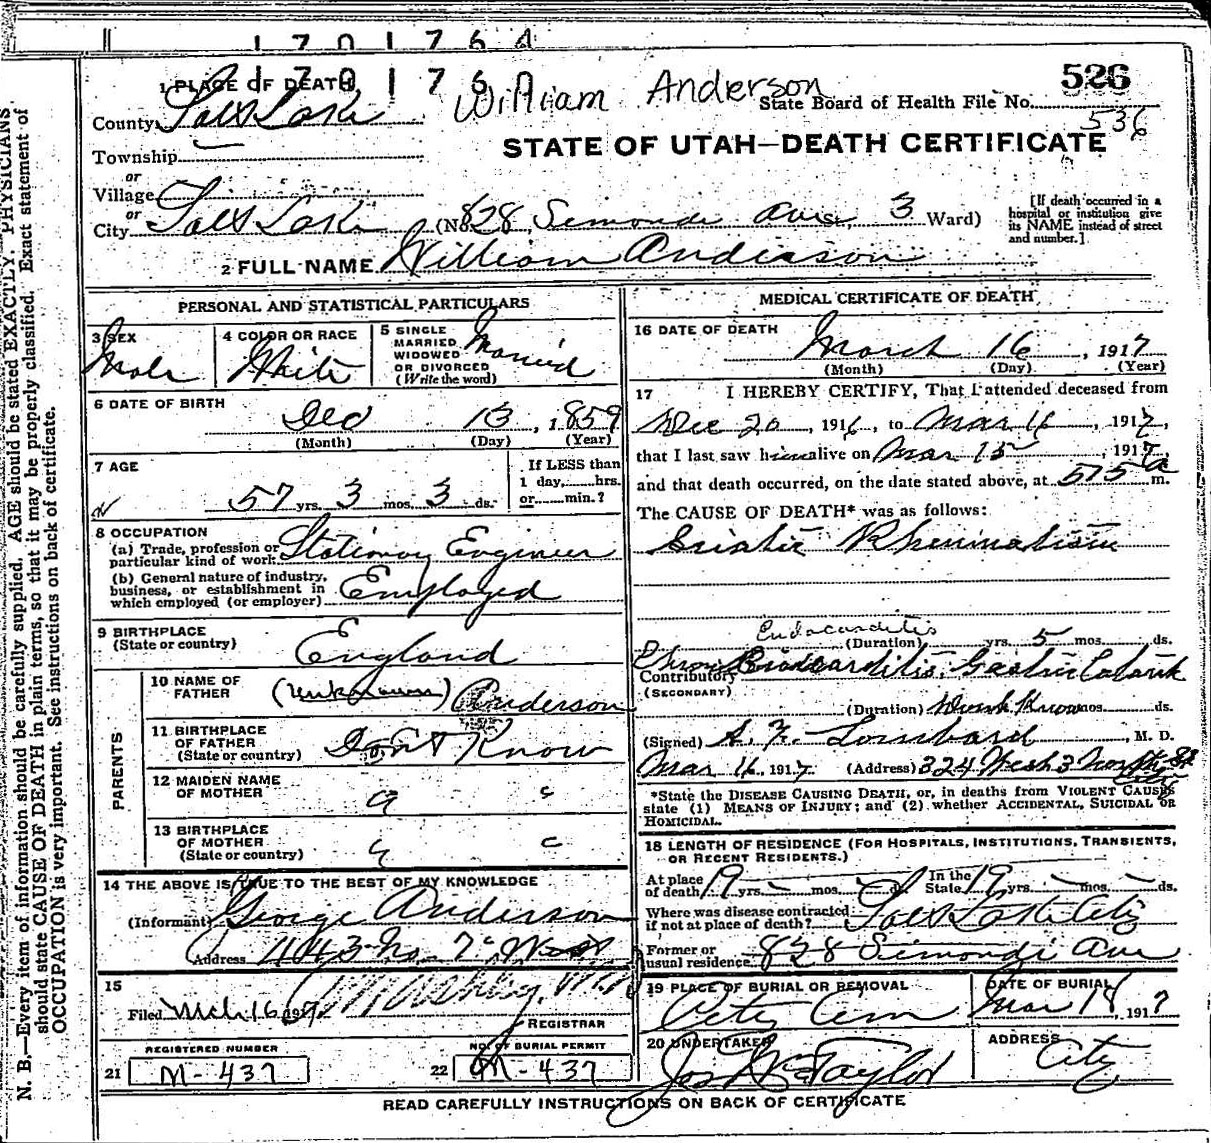 1701764
170176
1 PLACE OF DEATH
William Anderson
526
State Board of Health File No.
536
County Salt Lake
STATE OF UTAH—DEATH CERTIFICATE
Township
or
Village
or
City Salt Lake (No. 828 Simondi Ave, 3 Ward)
[If death occurred in a
hospital or institution give
its NAME instead of street
and number.]
2 FULL NAME William Anderson
PERSONAL AND STATISTICAL PARTICULARS
3 SEX
Male
4 COLOR OR RACE
White
5 SINGLE
MARRIED
WIDOWED
OR DIVORCED
(Write the word)
Married
6 DATE OF BIRTH
Dec 13, 1859
(Month) (Day) (Year)
7 AGE
57 yrs. 3 mos. 3 ds.
If LESS than
1 day,......hrs.
or......min.?
8 OCCUPATION
(a) Trade, profession or
particular kind of work Stationary Engineer
(b) General nature of industry,
business, or establishment in
which employed (or employer) Employed
9 BIRTHPLACE
(State or country)
England
PARENTS
10 NAME OF
FATHER (unknown) Anderson
11 BIRTHPLACE
OF FATHER
(State or country) Don't Know
12 MAIDEN NAME
OF MOTHER
13 BIRTHPLACE
OF MOTHER
(State or country)
14 THE ABOVE IS TRUE TO THE BEST OF MY KNOWLEDGE
(Informant) George Anderson
Address 443 No. 7th West
15
Filed Mch 16 1917
REGISTRAR
REGISTERED NUMBER
21 M-437
NO. OF BURIAL PERMIT
22 M-437
MEDICAL CERTIFICATE OF DEATH
16 DATE OF DEATH
March 16, 1917
(Month) (Day) (Year)
17 I HEREBY CERTIFY, That I attended deceased from
Dec 20, 1916, to Mar 16, 1917,
that I last saw him alive on Mar 15, 1917,
and that death occurred, on the date stated above, at 515 a m.
The CAUSE OF DEATH* was as follows:
Sciatic Rheumatism
Endocarditis
(Duration) yrs. 5 mos. ds.
Contributory Chronic Endocarditis, Gastric Catarrh
(SECONDARY)
(Duration) Don't Know mos. ds.
(Signed) A. F. Lombard, M. D.
Mar 16, 1917 (Address) 324 West 3 North St
City
*State the DISEASE CAUSING DEATH, or, in deaths from VIOLENT CAUSES
state (1) MEANS OF INJURY; and (2) whether ACCIDENTAL, SUICIDAL OR
HOMICIDAL.
18 LENGTH OF RESIDENCE (FOR HOSPITALS, INSTITUTIONS, TRANSIENTS,
OR RECENT RESIDENTS.)
At place
of death 19 yrs. - mos. - ds.
In the
State 19 yrs. - mos. - ds.
Where was disease contracted
if not at place of death? Salt Lake City
Former or
usual residence 828 Simondi Ave
19 PLACE OF BURIAL OR REMOVAL
City Cem
DATE OF BURIAL
Mar 18, 1917
20 UNDERTAKER
Jos Wm Taylor
ADDRESS
City
READ CAREFULLY INSTRUCTIONS ON BACK OF CERTIFICATE
N. B.—Every item of information should be carefully supplied. AGE should be stated EXACTLY. PHYSICIANS
should state CAUSE OF DEATH in plain terms, so that it may be properly classified. Exact statement of
OCCUPATION is very important. See instructions on back of certificate.